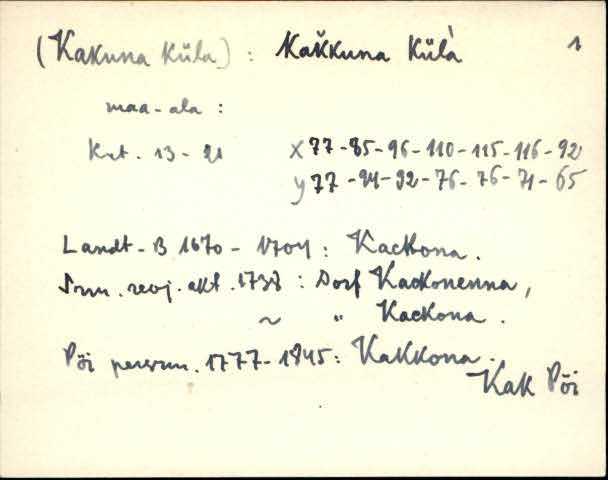 (Kakuna Küla) : Kak̆kuna Kül̀a 1
maa-ala :
Krt. 13 - 21 X 77-85-96-110-115-116-92
y 77-94-92-76-76-71-65
Landt-B 1670 - 1704 : Kackona.
revj. akt. 1738 : Dorf Kackonenna,
~ " Kackona.
Pöi 1777-1845: Kakkona.
Kak Pöi